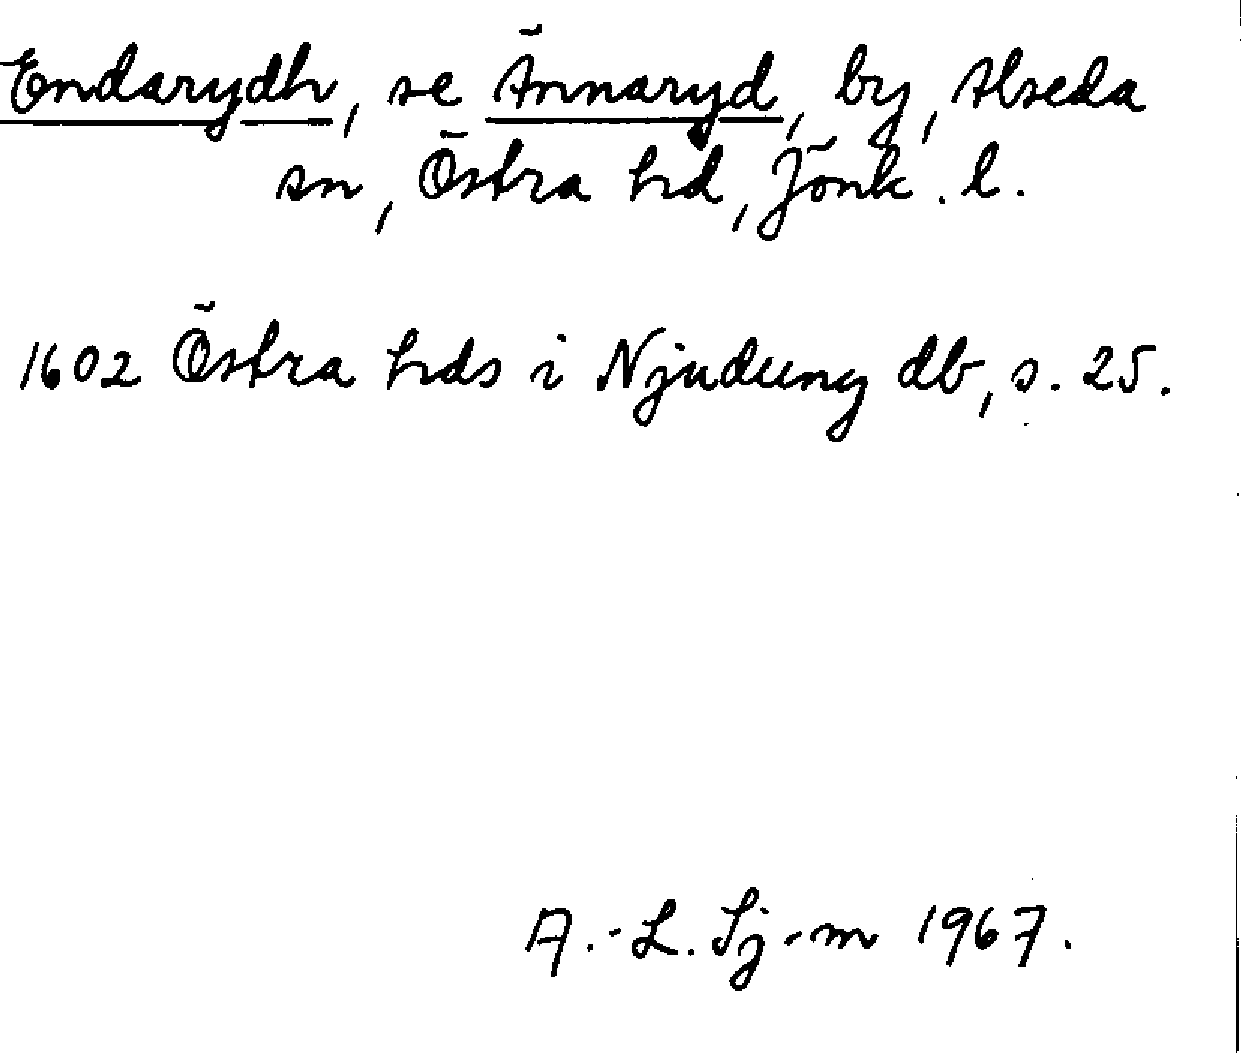 Endarydh, se Ännaryd, by, Alseda
sn, Östra hd, Jönk. l.
1602 Östra hds i Njudung db, s. 25.
A.-L. Sj-m 1967.